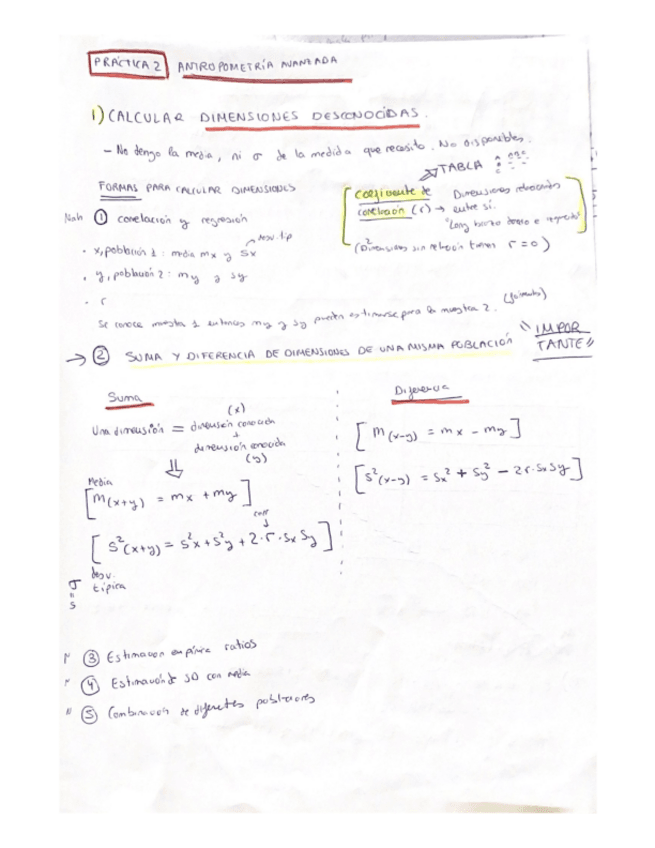 PRÁCTICA 2 ANTROPOMETRÍA AVANZADA
1) CALCULAR DIMENSIONES DESCONOCIDAS.
- No tengo la media, ni σ de la medida que necesito. No disponibles.
TABLA
FORMAS PARA CALCULAR DIMENSIONES
coeficiente de correlación (r) → Dimensiones relacionadas entre sí.
"Long brazo
(Dimensiones sin relación tienen r = 0)
Nah ① correlación y regresión
desv. tip
· x, población 1: media mx y Sx
· y, población 2: my y sy
· r
Se conoce muestra 1 entonces my y sy pueden estimarse para la muestra 2.
→ ② SUMA Y DIFERENCIA DE DIMENSIONES DE UNA MISMA POBLACIÓN "IMPORTANTE"
Suma
(x)
Una dimensión = dimensión conocida
+
dimensión conocida
(y)
⇓
Media
[m(x+y) = mx + my]
corr
↓
[S²(x+y) = S²x + S²y + 2·r·Sx Sy]
desv. típica
σ = s
Diferencia
[m(x-y) = mx - my]
[S²(x-y) = Sx² + Sy² - 2r·Sx Sy]
" ③ Estimación empírica ratios
" ④ Estimación de SD con media
" ⑤ Combinación de diferentes poblaciones